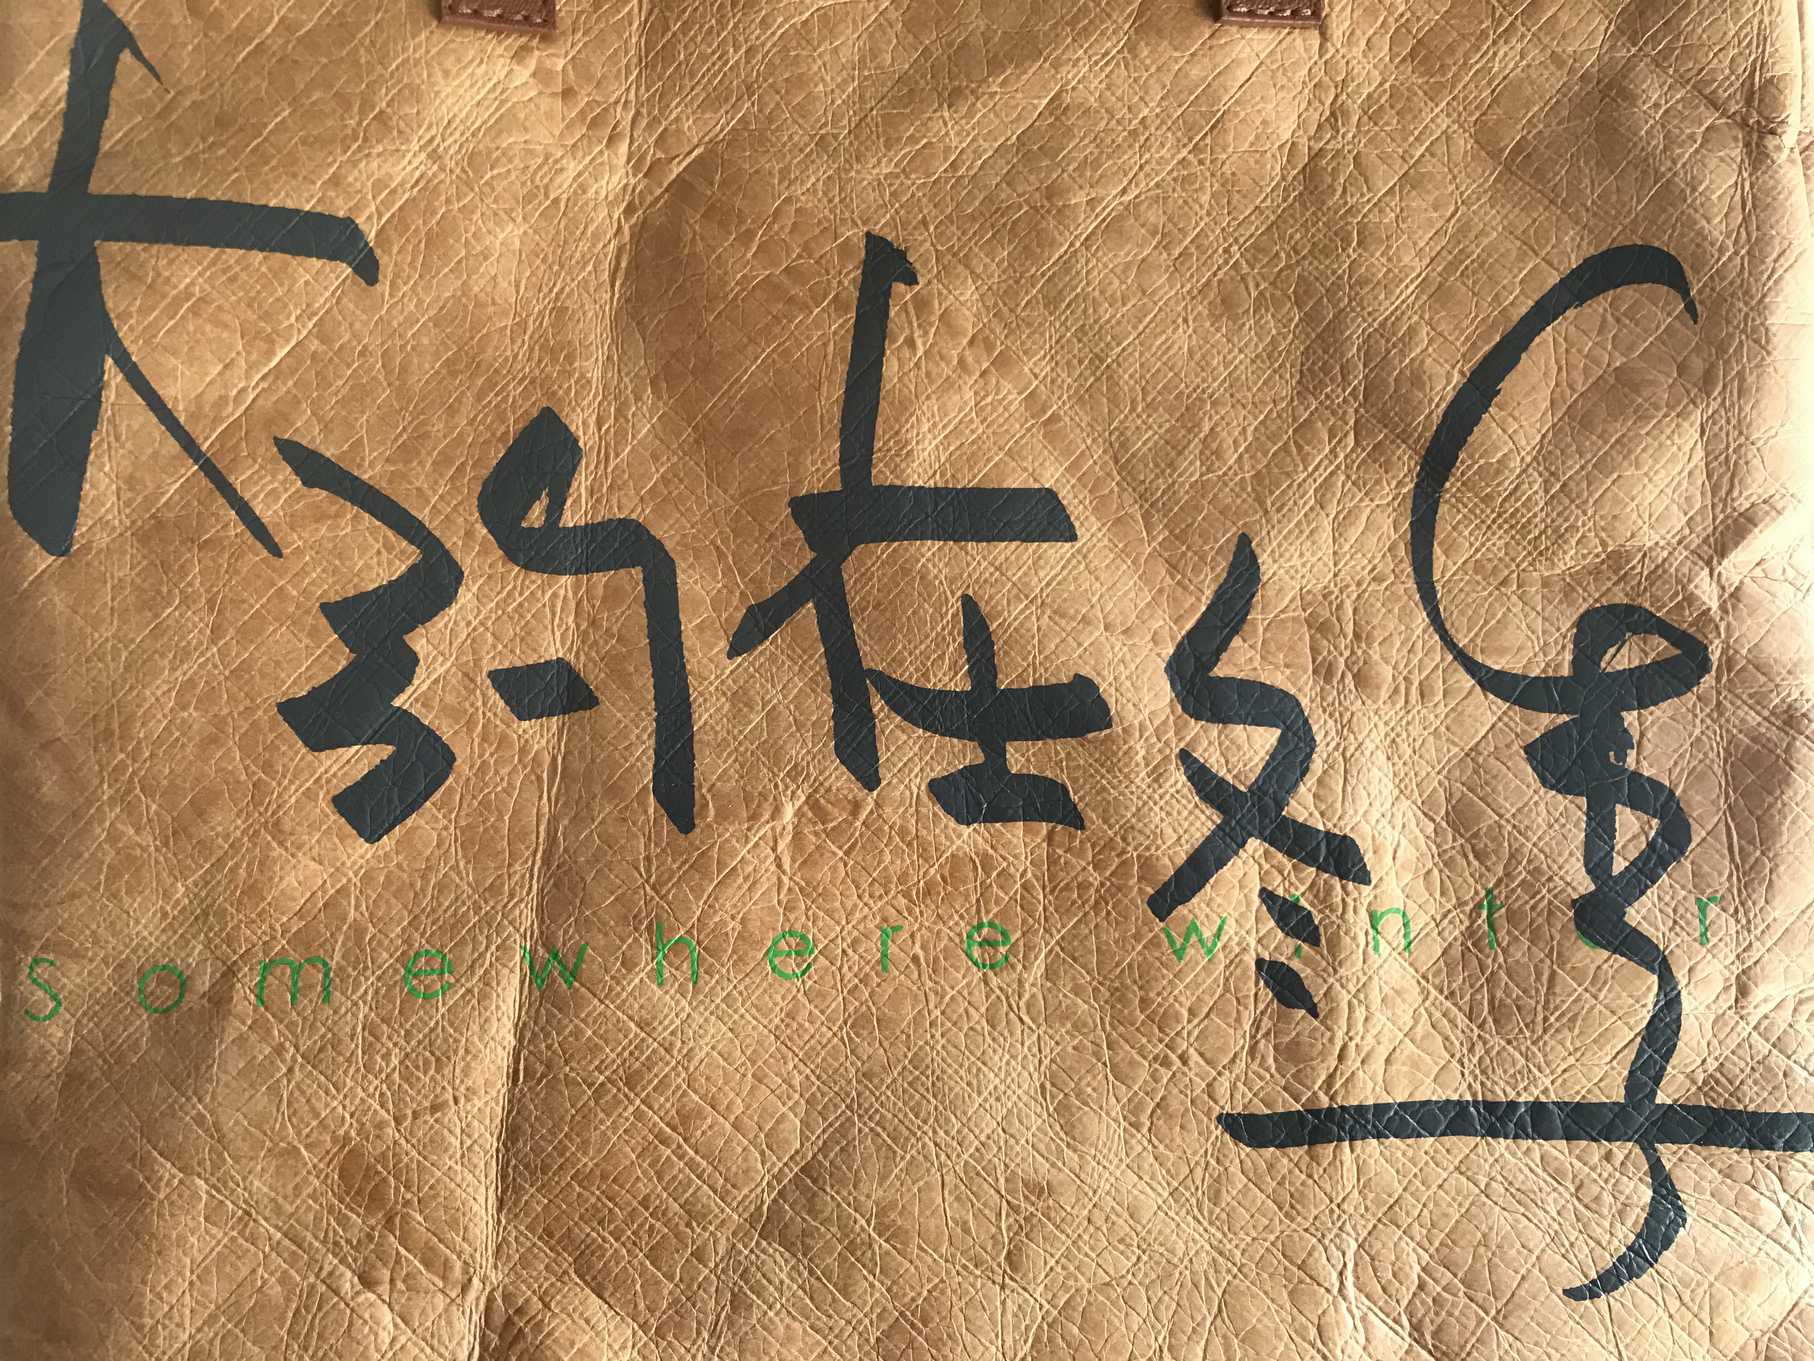 大约在冬季
somewhere winter